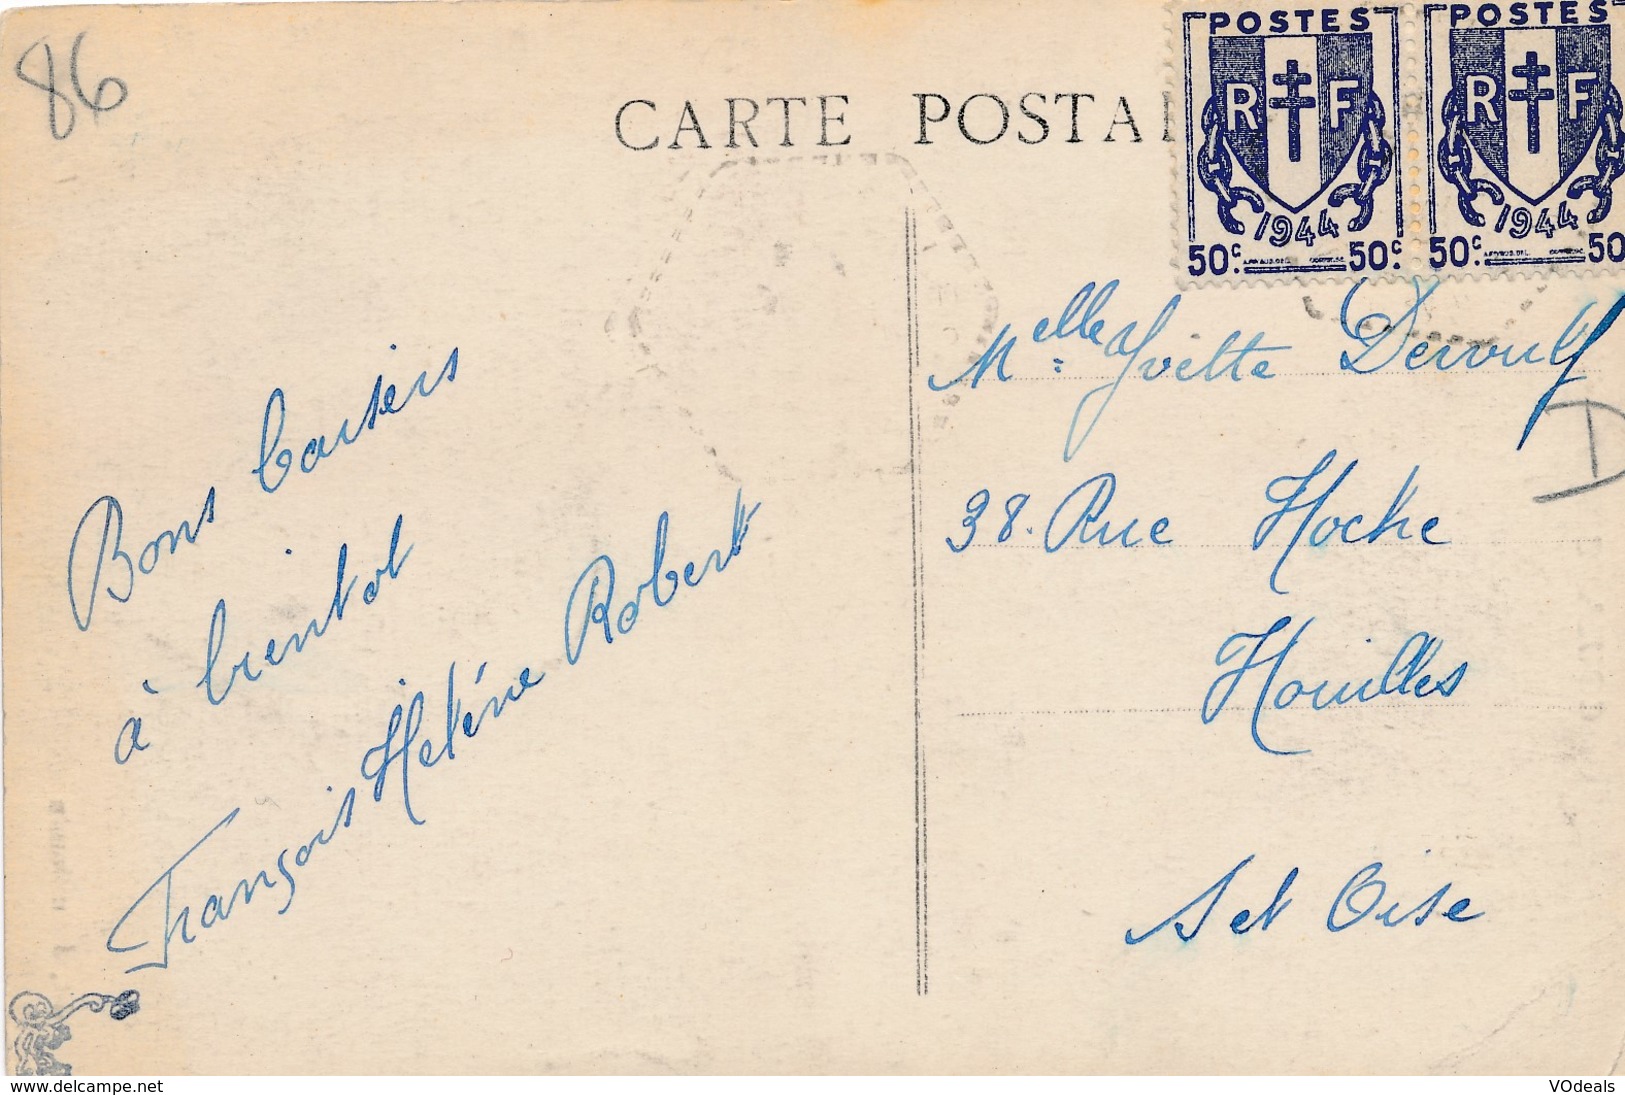 86
CARTE POSTA
POSTES
RF
1944
50c. 50c.
POSTES
RF
1944
50c. 50
Bons baisers
à bientot
François Heléne Robert
Melle Yvette
38. Rue Hoche
Houilles
S et Oise
D
www.delcampe.net
VOdeals